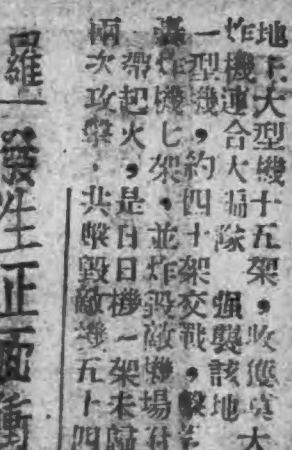 地上大型機十五架，收獲莫大
炸機連合大編隊 强襲該地
一型機，約四十架交戰，擊
轟炸機七架，並炸毀敵機場
帶起火，是日日機一架未歸
兩次攻擊，共擊毀敵機五十四
羅一發生正面衝